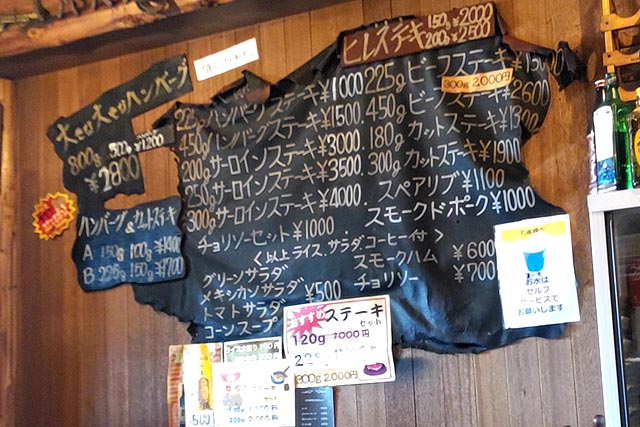 ヒレステーキ 150g ¥2000
200g ¥2500
大きい大きいハンバーグ
800g
500g ¥1200
¥2800
225g ハンバーグステーキ ¥1000
450g ハンバーグステーキ ¥1500
200g サーロインステーキ ¥3000
250g サーロインステーキ ¥3500
300g サーロインステーキ ¥4000
チョリソーセット ¥1000
225g ビーフステーキ
300g 2,000円
450g ビーフステーキ ¥2600
180g カットステーキ
300g カットステーキ ¥1900
スペアリブ ¥1100
スモークドポーク ¥1000
<以上ライス、サラダ、コーヒー付>
グリーンサラダ
メキシカンサラダ
トマトサラダ
コーンスープ
¥500
スモークハム ¥600
チョリソー ¥700
ハンバーグ&カットステキ
A 150g 100g ¥1400
B 225g 150g ¥1700
お水は
セルフ
サービスで
お願いします
おすすめ
ステーキ
セット
120g
300g 2,000円